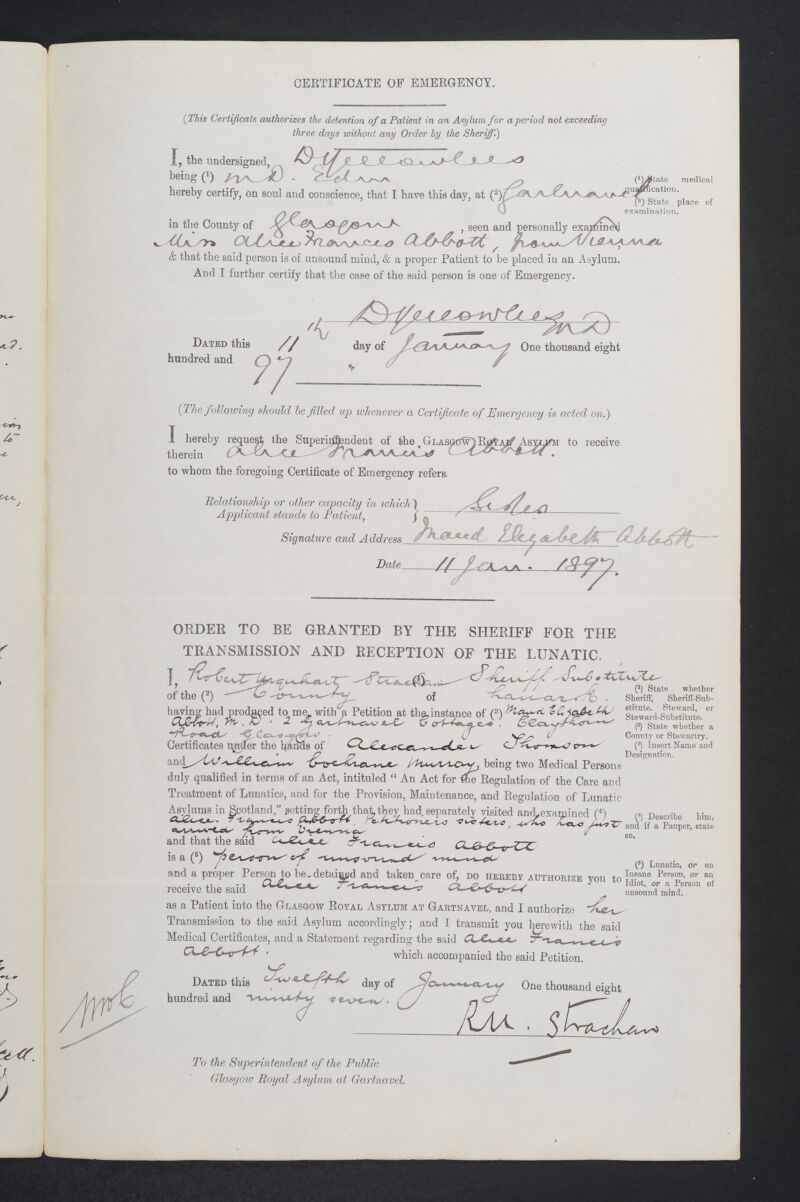 CERTIFICATE OF EMERGENCY.
(This Certificate authorizes the detention of a Patient in an Asylum for a period not exceeding
three days without any Order by the Sheriff.)
I, the undersigned, D Yellowlees
being (¹) M.D. Edin
hereby certify, on soul and conscience, that I have this day, at (²) Gartnavel
(¹) State medical
qualification.
(²) State place of
examination.
in the County of Glasgow , seen and personally examined
Miss Alice Frances Abbott, from Vienna
& that the said person is of unsound mind, & a proper Patient to be placed in an Asylum.
And I further certify that the case of the said person is one of Emergency.
D Yellowlees MD
DATED this 11th day of January One thousand eight
hundred and 97
(The following should be filled up whenever a Certificate of Emergency is acted on.)
I hereby request the Superintendent of the GLASGOW ROYAL ASYLUM to receive
therein Alice Francis Abbott.
to whom the foregoing Certificate of Emergency refers.
Relationship or other capacity in which }
Applicant stands to Patient, } Sister
Signature and Address Maud Elizabeth Abbott
Date 11 Jan. 1897.
ORDER TO BE GRANTED BY THE SHERIFF FOR THE
TRANSMISSION AND RECEPTION OF THE LUNATIC.
I, Robert Urquhart Strachan (¹) Sheriff Substitute
of the (²) County of Lanark.
having had produced to me, with a Petition at the instance of (³) Maud Elizabeth
Abbott, M.D. 2 Gartnavel Cottages. Claythorn
Road Glasgow.
Certificates under the hands of Alexander Thomson
and William Cochrane Murray, being two Medical Persons
(¹) State whether
Sheriff, Sheriff-Sub-
stitute. Steward, or
Steward-Substitute.
(²) State whether a
County or Stewartry.
(³) Insert Name and
Designation.
duly qualified in terms of an Act, intituled “ An Act for the Regulation of the Care and
Treatment of Lunatics, and for the Provision, Maintenance, and Regulation of Lunatic
Asylums in Scotland,” setting forth that they had separately visited and examined (⁴)
Alice Francis Abbott, Petitioners sisters, who has just
arrived from Vienna
(⁴) Describe him,
and if a Pauper, state
so.
and that the said Alice Francis Abbott
is a (⁵) person of unsound mind
and a proper Person to be detained and taken care of, DO HEREBY AUTHORIZE you to
receive the said Alice Francis Abbott
(⁵) Lunatic, or an
Insane Person, or an
Idiot, or a Person of
unsound mind.
as a Patient into the GLASGOW ROYAL ASYLUM AT GARTNAVEL, and I authorize her
Transmission to the said Asylum accordingly; and I transmit you herewith the said
Medical Certificates, and a Statement regarding the said Alice Francis
Abbott. which accompanied the said Petition.
DATED this Twelfth day of January One thousand eight
hundred and ninety seven.
R.U. Strachan
To the Superintendent of the Public
Glasgow Royal Asylum at Gartnavel.